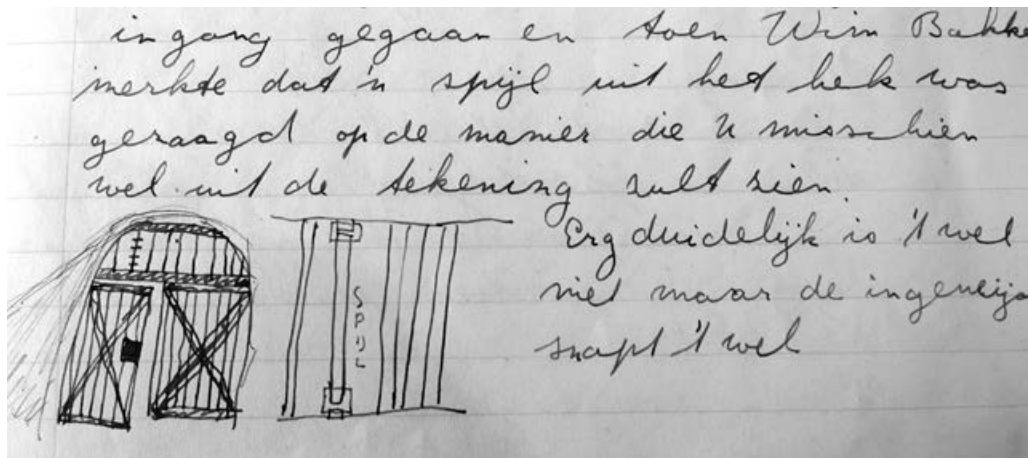 ingang gegaan en toen Wim Bakke
merkte dat 'n spijl uit het hek was
gezaagd op de manier die U misschien
wel uit de tekening zult zien.
SPIJL
Erg duidelijk is 't wel
niet maar de
snapt 't wel